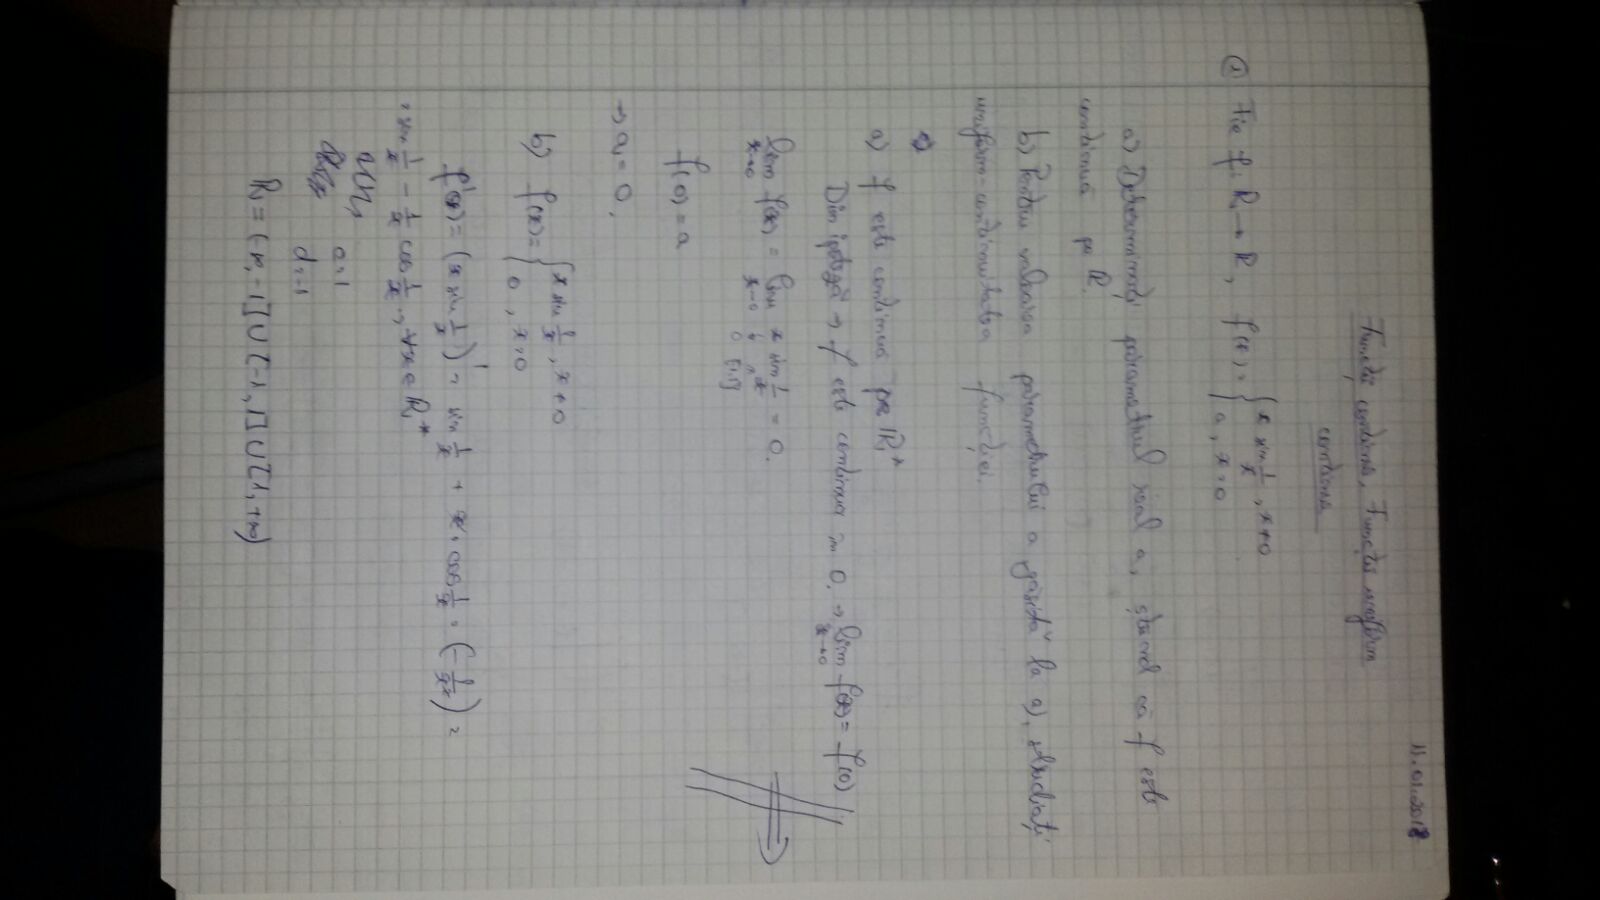 11.01.2018
Funcții continue. Funcții uniform
continue
① Fie f: ℝ → ℝ, f(x) = { x sin 1/x , x ≠ 0
a , x = 0
a) Determinați parametrul real a, știind că f este
continuă pe ℝ.
b) Pentru valoarea parametrului a găsită la a), studiați
uniform-continuitatea funcției.
a) f este continuă pe ℝ*
Din ipoteză → f este continuă în 0. → lim x→0 f(x) = f(0)
lim x→0 f(x) = lim x→0 x sin 1/x = 0.
0 [-1,1]
f(0) = a
→ a = 0.
b) f(x) = { x sin 1/x , x ≠ 0
0 , x = 0
f'(x) = (x sin 1/x)' = sin 1/x + x · cos 1/x · (-1/x²) =
= sin 1/x - 1/x cos 1/x , ∀x ∈ ℝ*
c = 1
d = -1
ℝ = (-∞, -1] ∪ [-1, 1] ∪ [1, +∞)